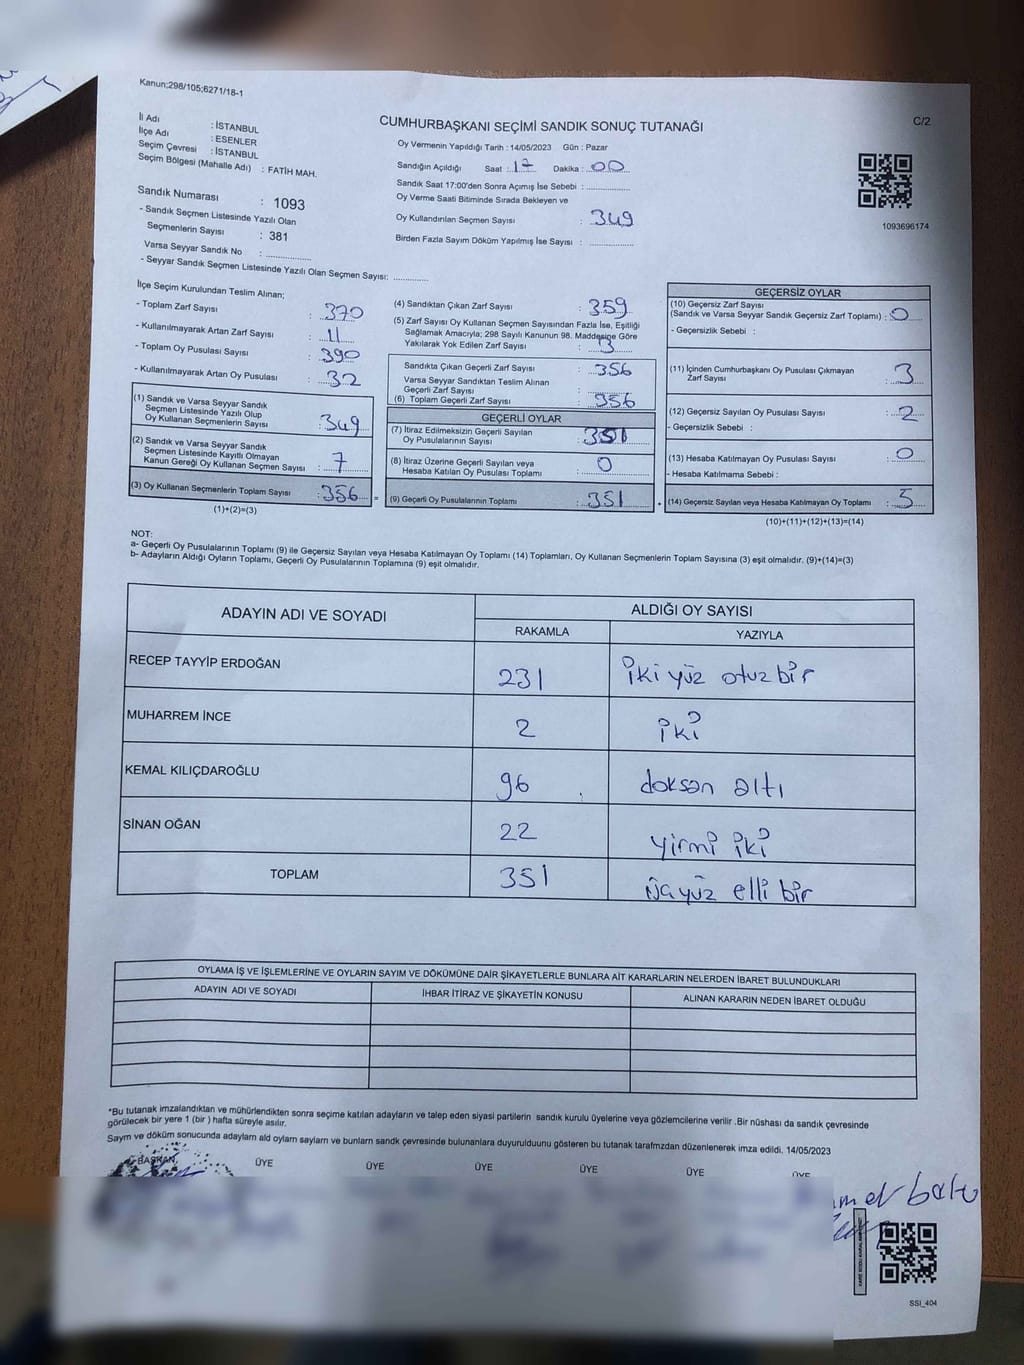 Kanun;298/105;6271/18-1
C/2
CUMHURBAŞKANI SEÇİMİ SANDIK SONUÇ TUTANAĞI
İl Adı : İSTANBUL
İlçe Adı : ESENLER
Seçim Çevresi : İSTANBUL
Seçim Bölgesi (Mahalle Adı) : FATİH MAH.
Sandık Numarası : 1093
- Sandık Seçmen Listesinde Yazılı Olan
Seçmenlerin Sayısı : 381
Varsa Seyyar Sandık No : ..............
- Seyyar Sandık Seçmen Listesinde Yazılı Olan Seçmen Sayısı: ............
Oy Vermenin Yapıldığı Tarih : 14/05/2023 Gün : Pazar
Sandığın Açıldığı Saat : 17 Dakika : 00
Sandık Saat 17:00'den Sonra Açımış İse Sebebi : ..............
Oy Verme Saati Bitiminde Sırada Bekleyen ve
Oy Kullandırılan Seçmen Sayısı : 349
Birden Fazla Sayım Döküm Yapılmış İse Sayısı : ..............
1093696174
İlçe Seçim Kurulundan Teslim Alınan;
- Toplam Zarf Sayısı : 370
- Kullanılmayarak Artan Zarf Sayısı : 11
- Toplam Oy Pusulası Sayısı : 390
- Kullanılmayarak Artan Oy Pusulası : 32
(1) Sandık ve Varsa Seyyar Sandık
Seçmen Listesinde Yazılı Olup
Oy Kullanan Seçmenlerin Sayısı : 349
(2) Sandık ve Varsa Seyyar Sandık
Seçmen Listesinde Kayıtlı Olmayan
Kanun Gereği Oy Kullanan Seçmen Sayısı : 7
(3) Oy Kullanan Seçmenlerin Toplam Sayısı : 356 =
(1)+(2)=(3)
(4) Sandıktan Çıkan Zarf Sayısı : 359
(5) Zarf Sayısı Oy Kullanan Seçmen Sayısından Fazla İse, Eşitliği
Sağlamak Amacıyla; 298 Sayılı Kanunun 98. Maddesine Göre
Yakılarak Yok Edilen Zarf Sayısı :
Sandıkta Çıkan Geçerli Zarf Sayısı : 356
Varsa Seyyar Sandıktan Teslim Alınan
Geçerli Zarf Sayısı :
(6) Toplam Geçerli Zarf Sayısı : 356
GEÇERLİ OYLAR
(7) İtiraz Edilmeksizin Geçerli Sayılan
Oy Pusulalarının Sayısı : 351
(8) İtiraz Üzerine Geçerli Sayılan veya
Hesaba Katılan Oy Pusulası Toplamı : 0
(9) Geçerli Oy Pusulalarının Toplamı : 351
GEÇERSİZ OYLAR
(10) Geçersiz Zarf Sayısı
(Sandık ve Varsa Seyyar Sandık Geçersiz Zarf Toplamı) : 0
- Geçersizlik Sebebi :
(11) İçinden Cumhurbaşkanı Oy Pusulası Çıkmayan
Zarf Sayısı : 3
(12) Geçersiz Sayılan Oy Pusulası Sayısı : 2
- Geçersizlik Sebebi :
(13) Hesaba Katılmayan Oy Pusulası Sayısı : 0
- Hesaba Katılmama Sebebi :
(14) Geçersiz Sayılan veya Hesaba Katılmayan Oy Toplamı : 5
(10)+(11)+(12)+(13)=(14)
NOT:
a- Geçerli Oy Pusulalarının Toplamı (9) ile Geçersiz Sayılan veya Hesaba Katılmayan Oy Toplamı (14) Toplamları, Oy Kullanan Seçmenlerin Toplam Sayısına (3) eşit olmalıdır. (9)+(14)=(3)
b- Adayların Aldığı Oyların Toplamı, Geçerli Oy Pusulalarının Toplamına (9) eşit olmalıdır.
ADAYIN ADI VE SOYADI ALDIĞI OY SAYISI
RAKAMLA YAZIYLA
RECEP TAYYİP ERDOĞAN 231 iki yüz otuz bir
MUHARREM İNCE 2 iki
KEMAL KILIÇDAROĞLU 96 doksan altı
SİNAN OĞAN 22 yirmi iki
TOPLAM 351 üçyüz elli bir
OYLAMA İŞ VE İŞLEMLERİNE VE OYLARIN SAYIM VE DÖKÜMÜNE DAİR ŞİKAYETLERLE BUNLARA AİT KARARLARIN NELERDEN İBARET BULUNDUKLARI
ADAYIN ADI VE SOYADI İHBAR İTİRAZ VE ŞİKAYETİN KONUSU ALINAN KARARIN NEDEN İBARET OLDUĞU
*Bu tutanak imzalandıktan ve mühürlendikten sonra seçime katılan adayların ve talep eden siyasi partilerin sandık kurulu üyelerine veya gözlemcilerine verilir .Bir nüshası da sandık çevresinde
görülecek bir yere 1 (bir ) hafta süreyle asılır.
Sayım ve döküm sonucunda adayların ald oyların sayların ve bunların sandk çevresinde bulunanlara duyurulduunu gösteren bu tutanak tarafmzdan düzenlenerek imza edildi. 14/05/2023
BAŞKAN ÜYE ÜYE ÜYE ÜYE ÜYE ÜYE
SSI_404